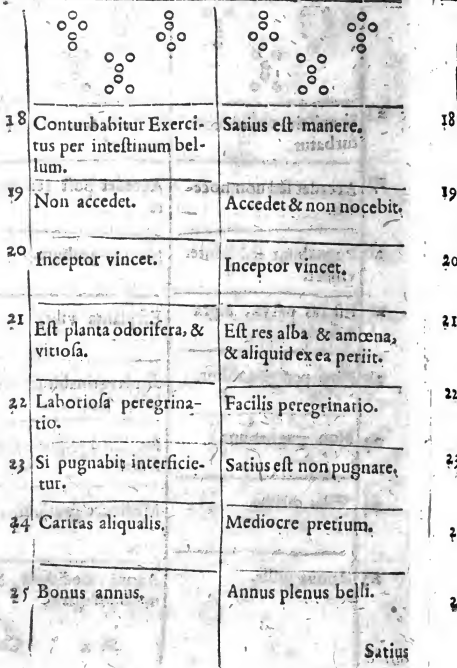 18 Conturbabitur Exerci-
tus per inteſtinum bel-
lum.
Satius eſt manere.
18
19 Non accedet.
Accedet & non nocebit.
19
20 Inceptor vincet.
Inceptor vincet.
20
21 Eſt planta odorifera, &
vitioſa.
Eſt res alba & amœna,
& aliquid ex ea periit.
21
22 Laborioſa peregrina-
tio.
Facilis peregrinatio.
22
23 Si pugnabit interficie-
tur.
Satius eſt non pugnare.
23
24 Caritas aliqualis.
Mediocre pretium.
2
25 Bonus annus.
Annus plenus belli.
2
Satius